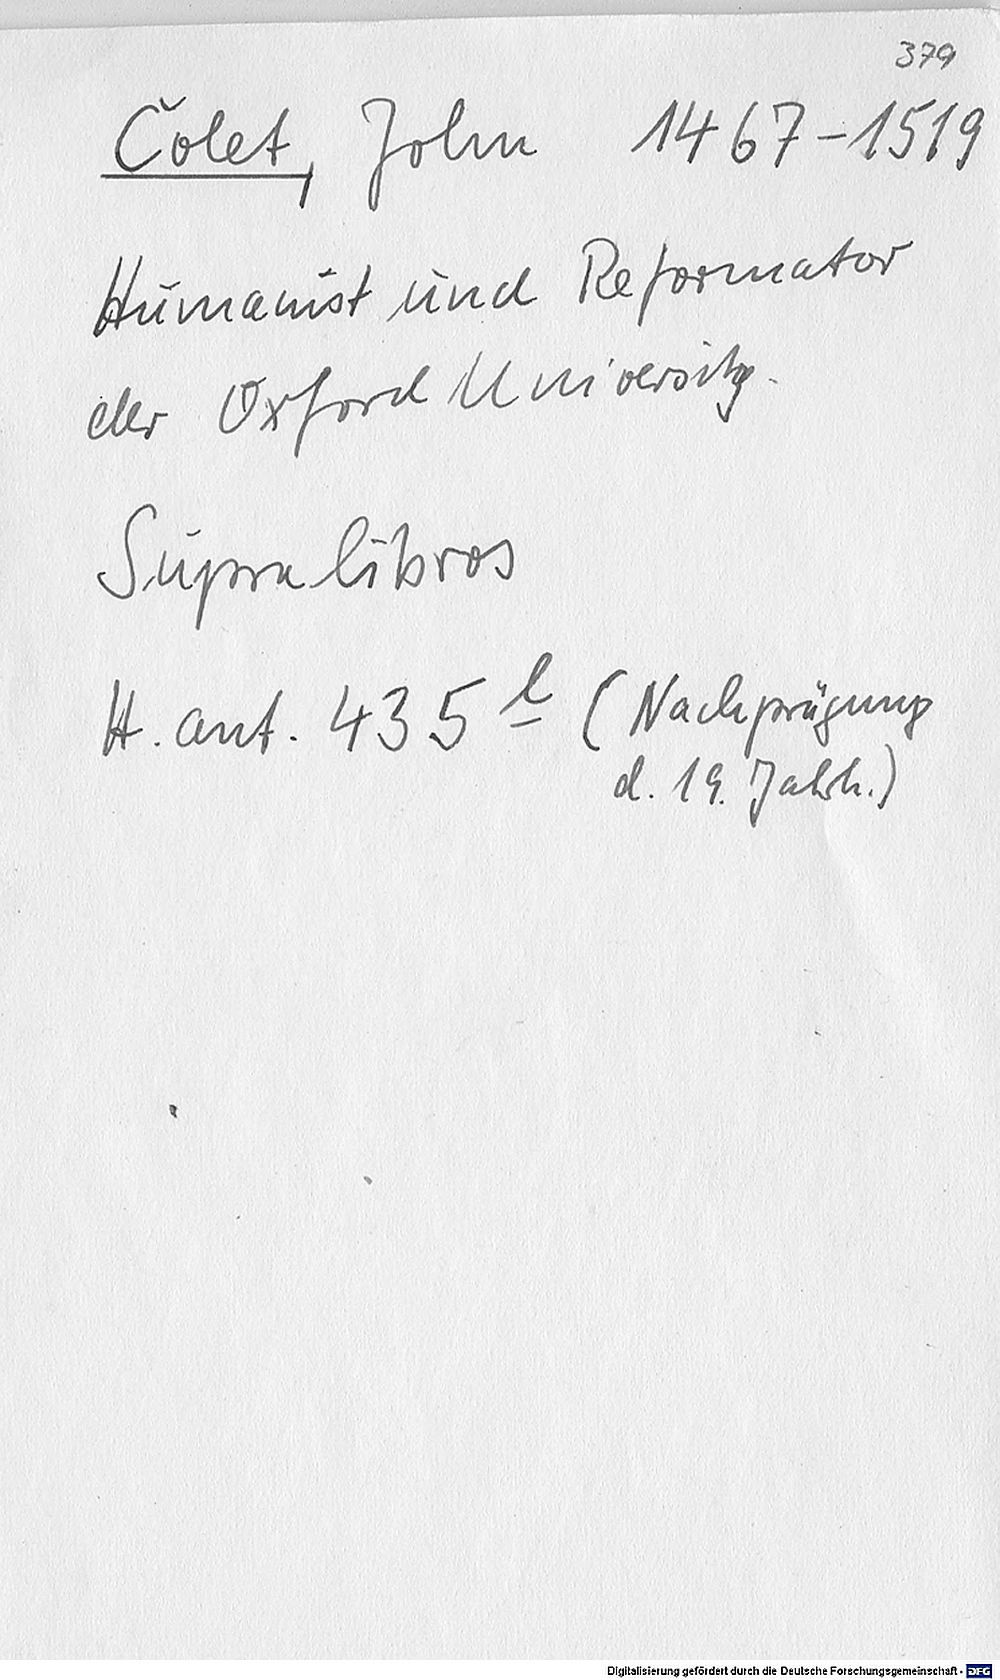 379
Colet, John 1467-1519
Humanist und Reformator
der Oxford University.
Supralibros
H. ant. 435 l (Nachprägung
d. 19. Jahrh.)
Digitalisierung gefördert durch die Deutsche Forschungsgemeinschaft - DFG